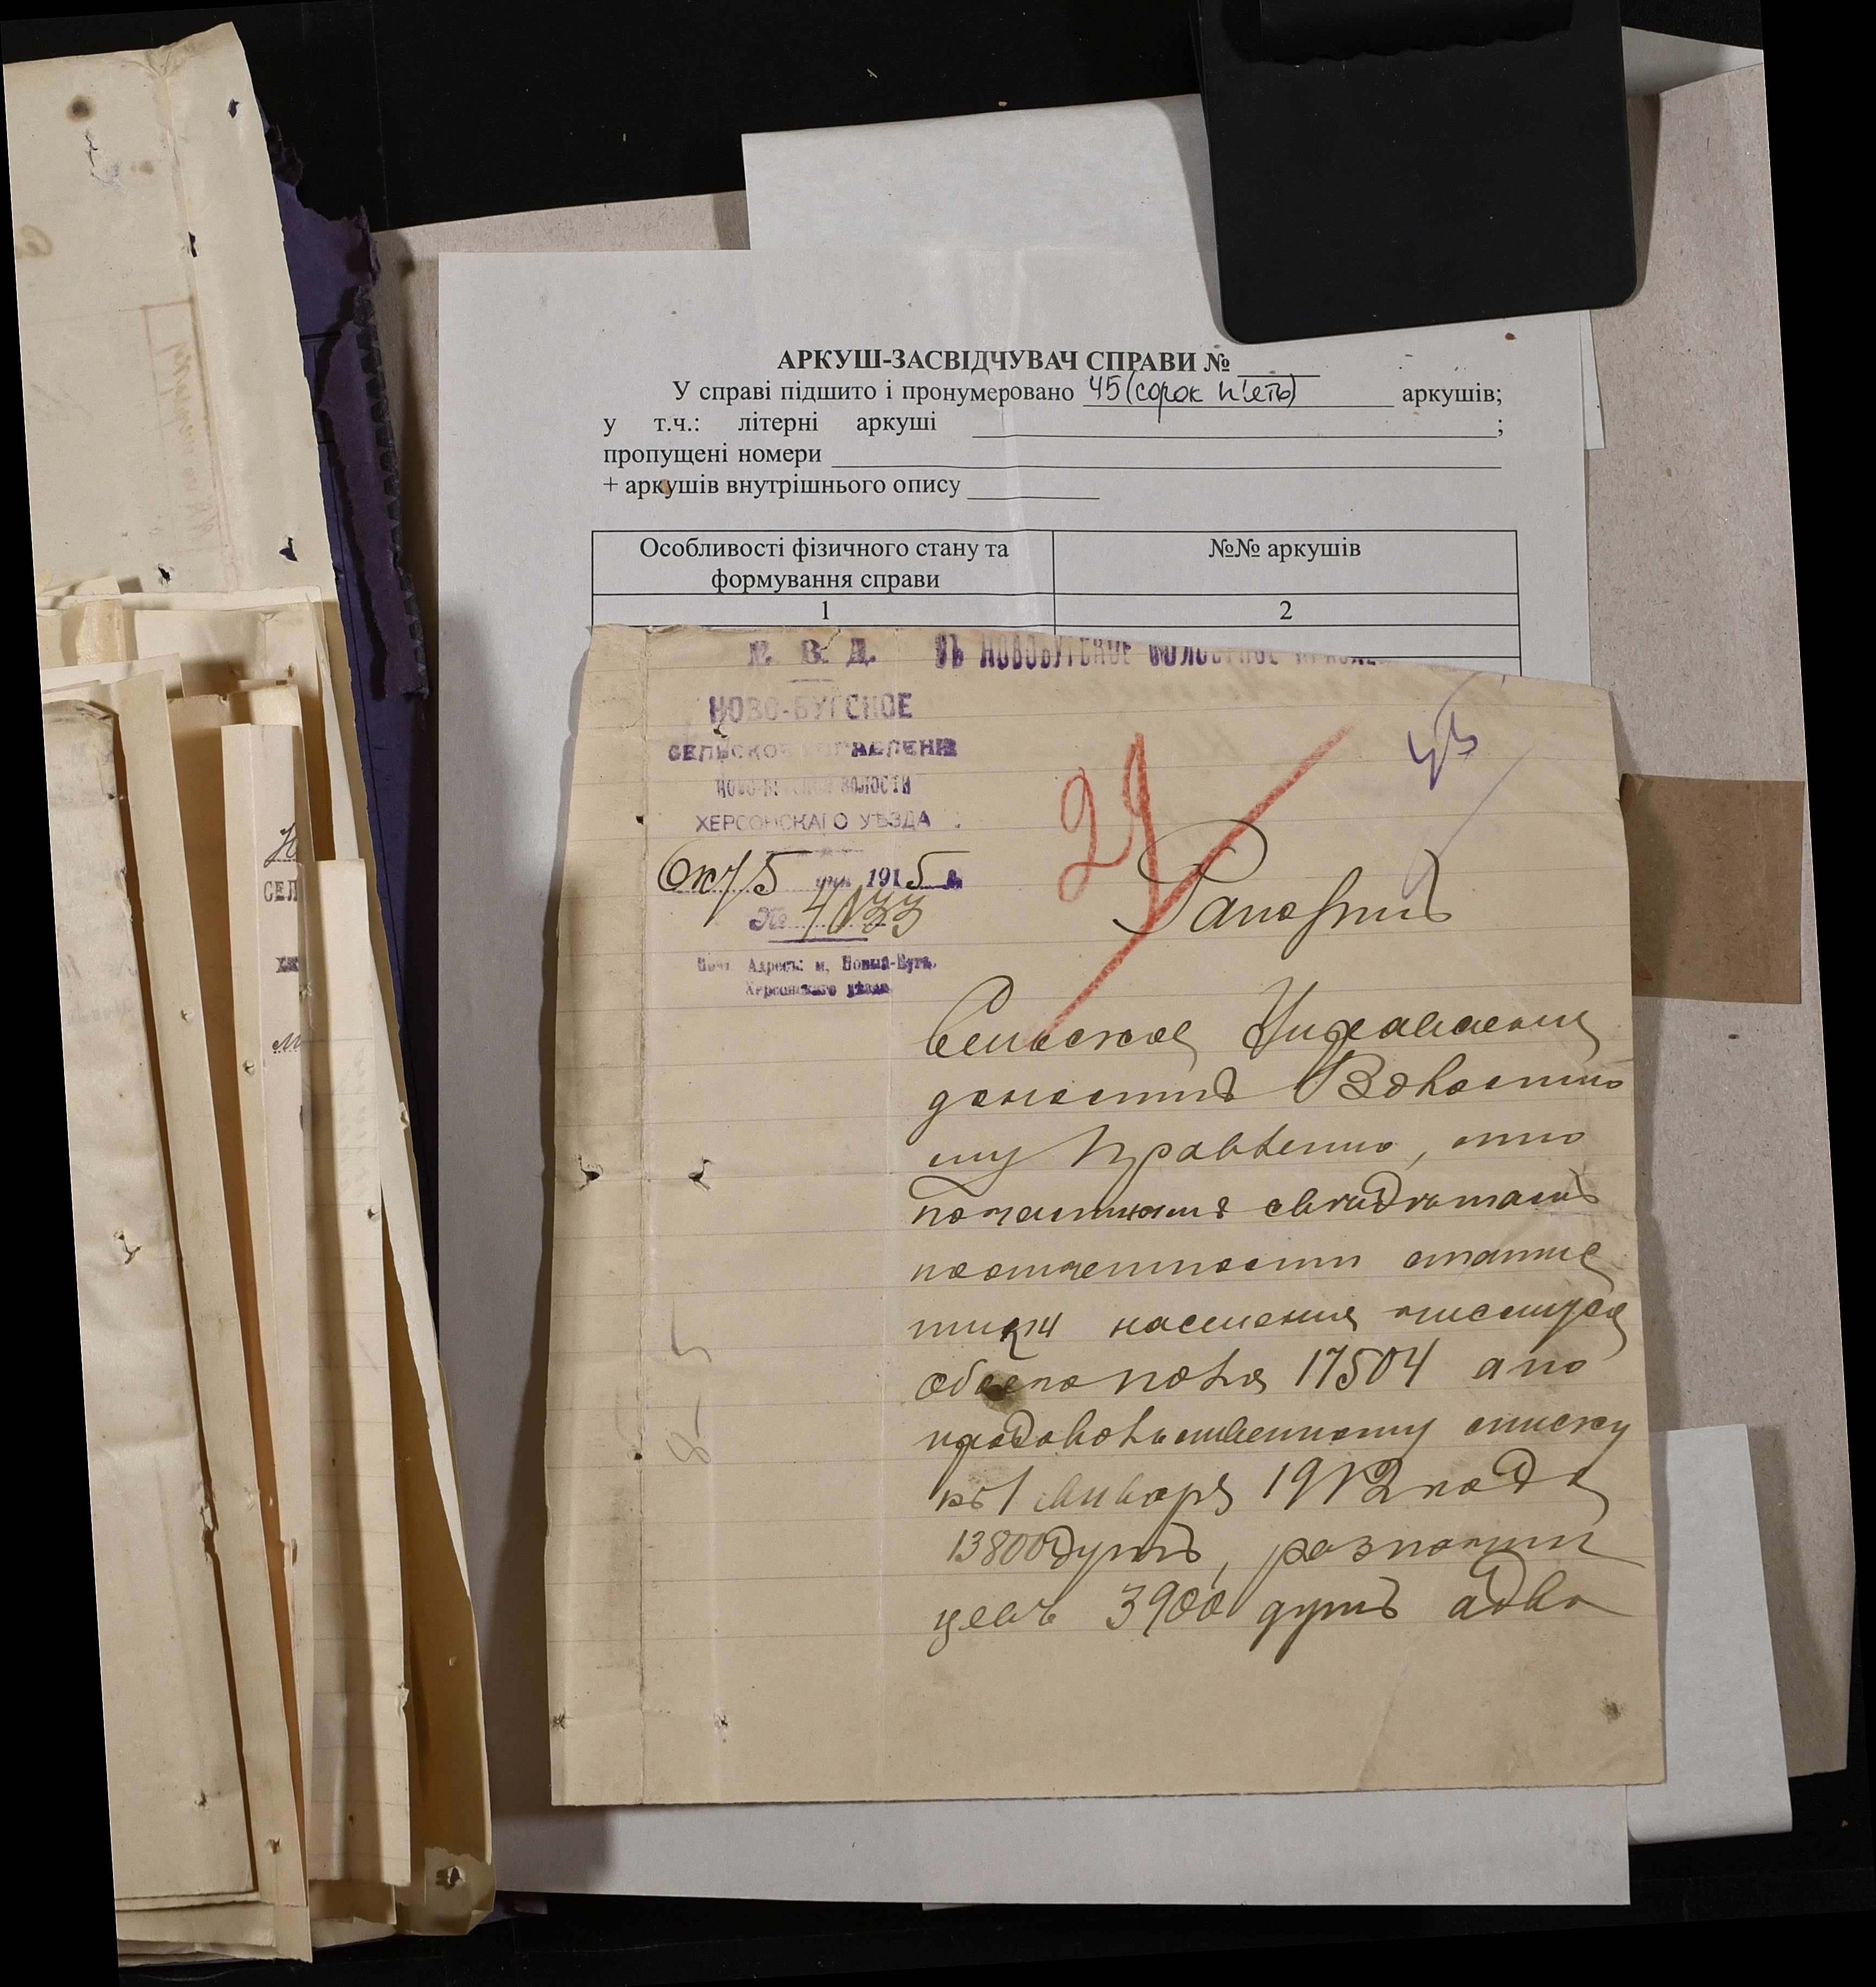 АРКУШ-ЗАСВІДЧУВАЧ СПРАВИ №
У справі підшито і пронумеровано 45 (сорок п'ять) аркушів;
у т.ч.: літерні аркуші ;
пропущені номери
+ аркушів внутрішнього опису
Особливості фізичного стану та формування справи
№№ аркушів
1
2
М. В. Д.
ВЪ НОВОБУГСКОЕ ВОЛОСТНОЕ
НОВО-БУГСКОЕ
СЕЛЬСКОЕ УПРАВЛЕНІЕ
НОВО-БУГСКОЙ ВОЛОСТИ
ХЕРСОНСКАГО УѢЗДА
Окт 5 дня 1915 г.
№ 4033
Почт. Адресъ: м. Новый-Бугъ,
Херсонскаго уѣзда.
29
Рапортъ
Сельское Управление
доноситъ Волостно
му Правлению, что
по
посемейности статис
тики населения числится
обоего пола 17504 а по
продовольственному списку
къ 1 Января 1912 года
13800 душъ, разночин
цевъ 3900 душъ а